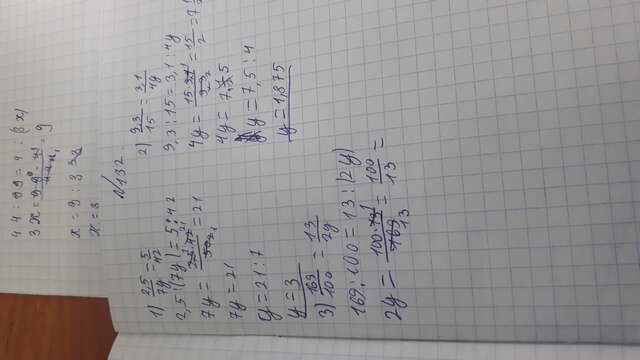 44 : 99 = 4 : (3x)
3x = = 9
x = 9 : 3
x = 3
№132.
1) 2,5/7y = 5/42
2,5 : (7y) = 5 : 42
7y = = 21
7y = 21
y = 21 : 7
y = 3
2) 9,3/15 = 3,1/4y
9,3 : 15 = 3,1 : 4y
4y = 15·3,1/9,3 = 15/2 = 7
4y = 7,5
y = 7,5 : 4
y = 1,875
3) 169/100 = 13/2y
169 : 100 = 13 : (2y)
2y = 100·13/169 = 100/13 =